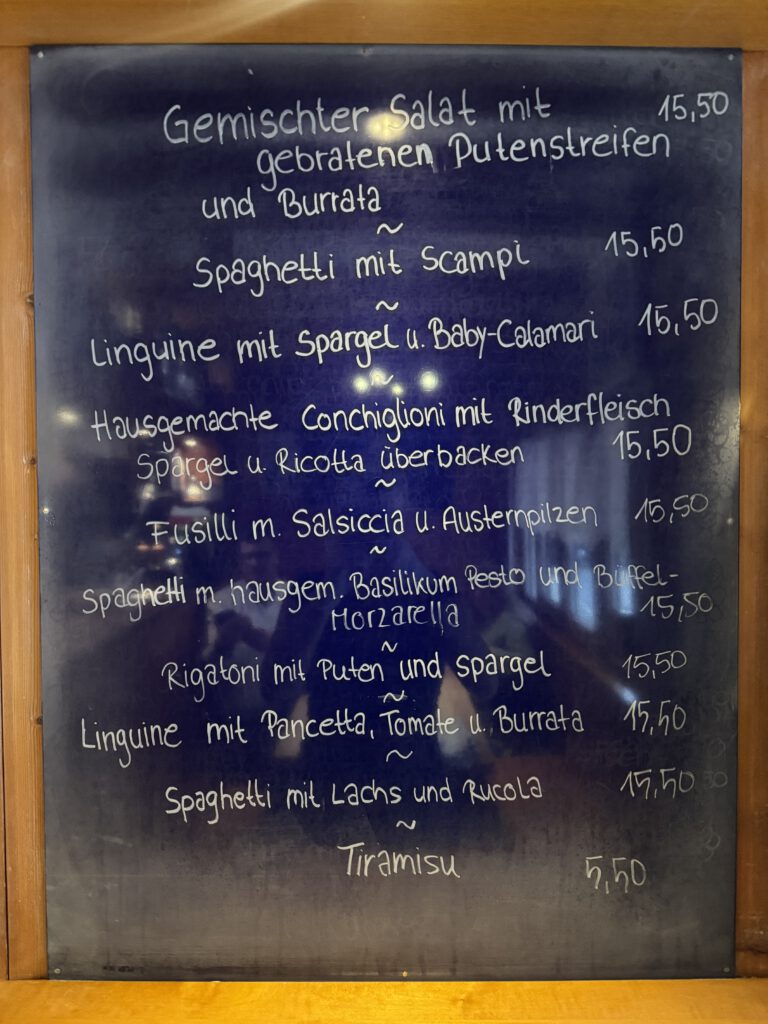 Gemischter Salat mit 15,50
gebratenen Putenstreifen
und Burrata
~
Spaghetti mit Scampi 15,50
~
Linguine mit Spargel u. Baby-Calamari 15,50
~
Hausgemachte Conchiglioni mit Rinderfleisch
Spargel u. Ricotta überbacken 15,50
~
Fusilli m. Salsiccia u. Austernpilzen 15,50
~
Spaghetti m. hausgem. Basilikum Pesto und Büffel-
Morzarella 15,50
~
Rigatoni mit Puten und spargel 15,50
~
Linguine mit Pancetta, Tomate u. Burrata 15,50
~
Spaghetti mit Lachs und Rucola 15,50
~
Tiramisu 5,50